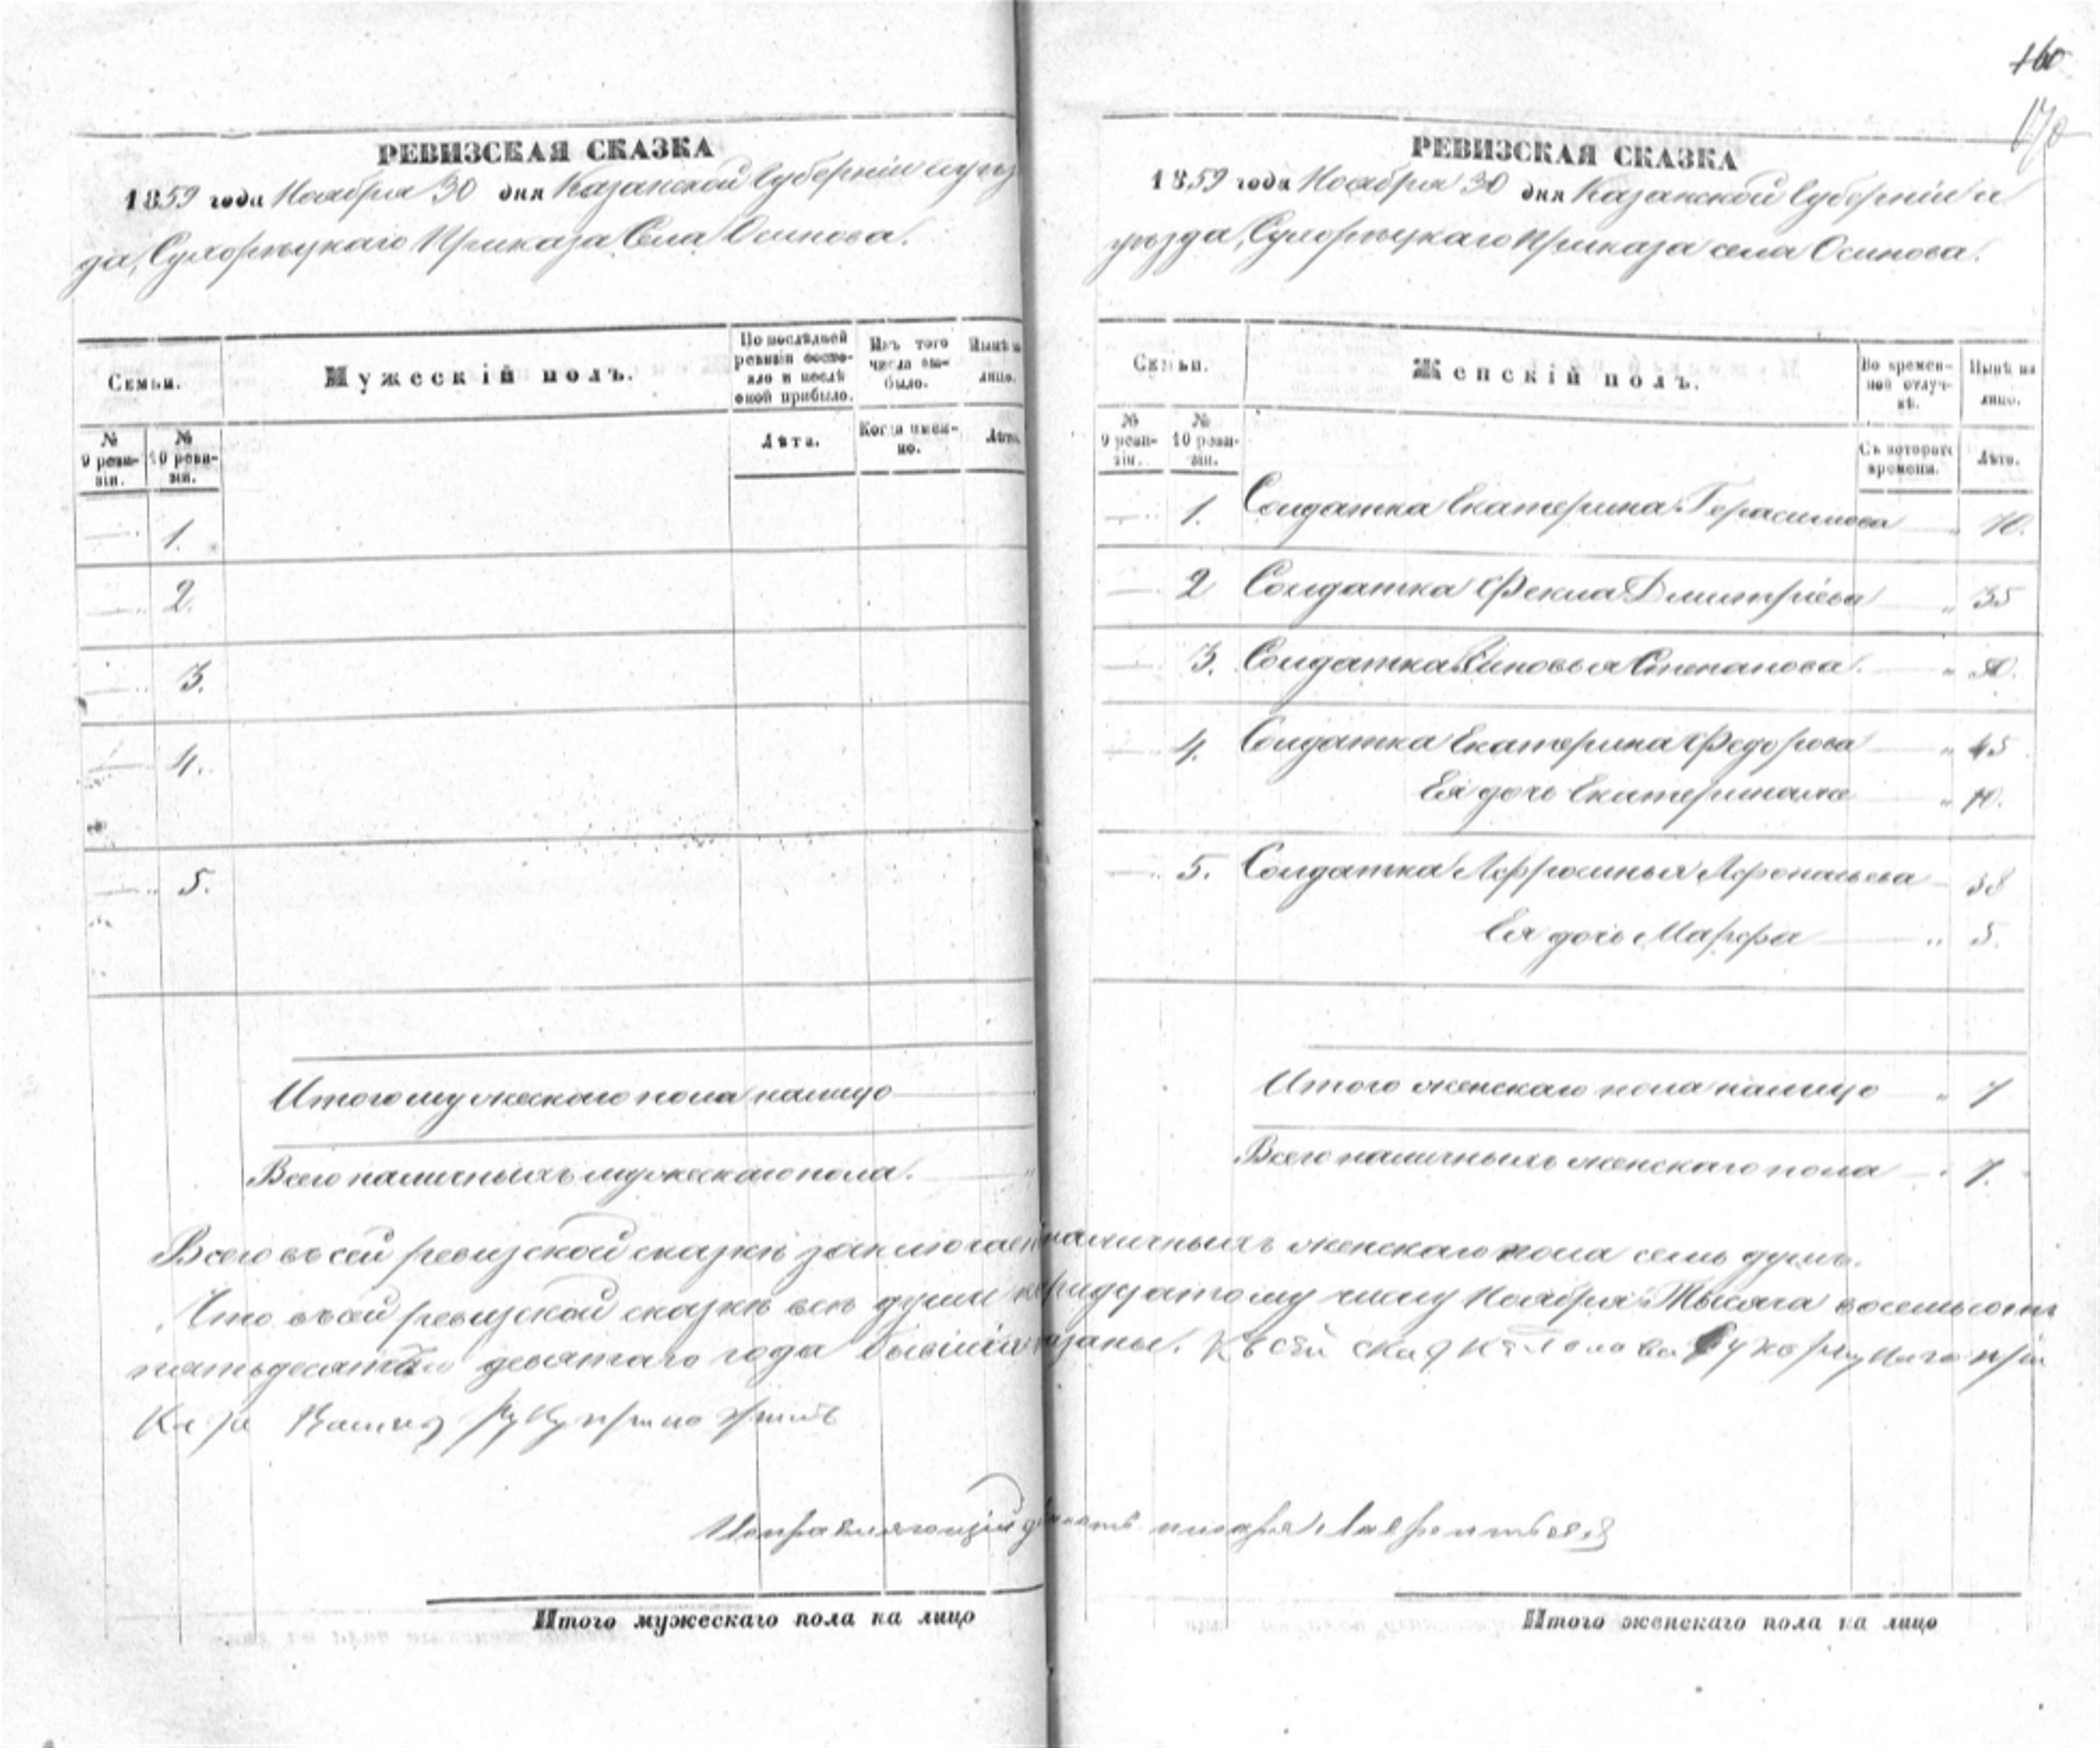 160
170
РЕВИЗСКАЯ СКАЗКА
1859 года Ноября 30 дня Казанской Губерніи и уѣз
да, Сухорѣцкаго Приказа Села Осинова.
Семьи.
Мужескій полъ.
По послѣдней ревизіи состояло и послѣ оной прибыло.
Изъ того числа выбыло.
Нынѣ на лицо.
№ 9 ревизіи.
№ 10 ревизіи.
Лѣта.
Когда именно.
Лѣта.
1.
2.
3.
4.
5.
Итого мужескаго пола налицо
Всего наличныхъ мужескаго пола.
РЕВИЗСКАЯ СКАЗКА
1859 года Ноября 30 дня Казанской Губерніи и
уѣзда, Сухорѣцкаго Приказа села Осинова.
Семьи.
Женскій полъ.
Во временной отлучкѣ.
Нынѣ на лицо.
№ 9 ревизіи.
№ 10 ревизіи.
Съ котораго времени.
Лѣта.
1. Солдатка Екатерина Герасимова 70.
2 Солдатка Фекла Дмитріева " 35
3. Солдатка Зиновья Степанова. "
4. Солдатка Екатерина Федорова " 45
Ея дочь Екатерина " 10.
5. Солдатка Афросинья Афонасьева 38
Ея дочь Марфа " 5.
Итого женскаго пола налицо " 7
Всего наличныхъ женскаго пола " 7.
Всего въ сей ревизской сказкѣ заключает наличныхъ женскаго пола семь душъ.
Что въ сей ревизской сказкѣ всѣ души къ тридцатому числу Ноября Тысяча восемьсотъ
пятьдесятъ девятаго года бывшія показаны. Къ сей сказкѣ Голова Сухорѣцкаго при
каза руку приложилъ
Исправляющій должность писаря Лаврентьевъ
Итого мужескаго пола на лицо
Итого женскаго пола на лицо